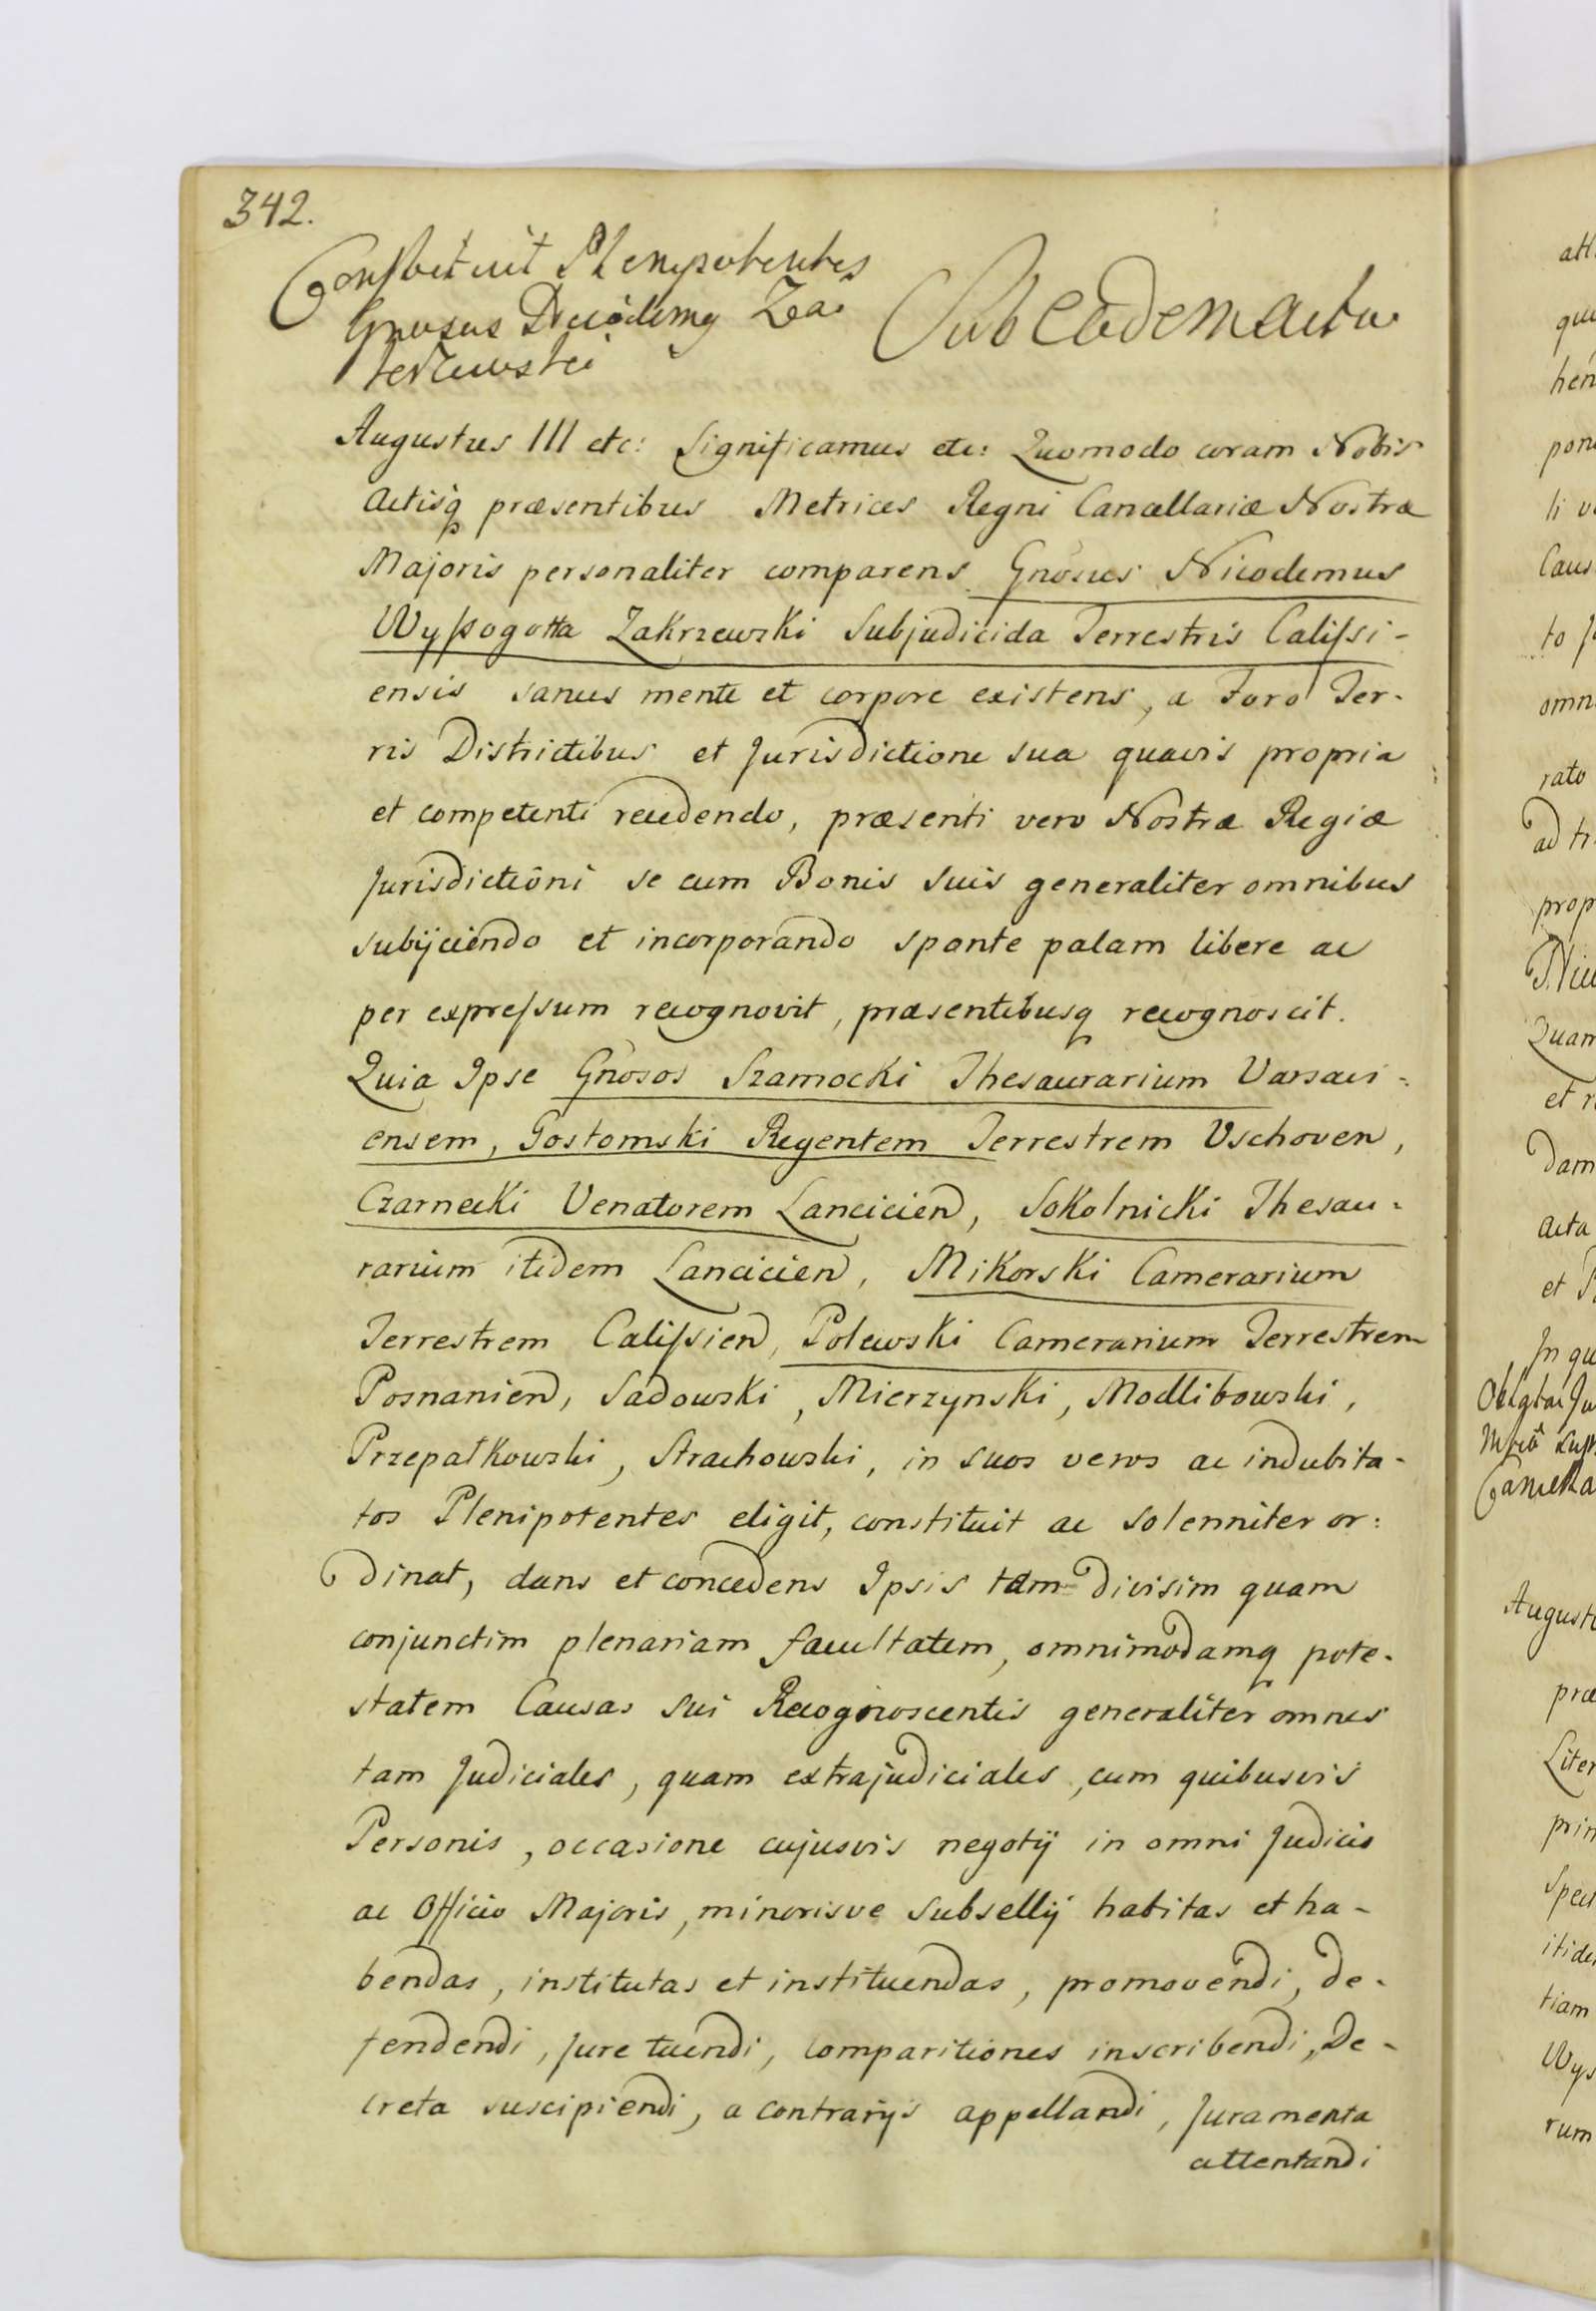 342.
Constituit Plenipotentes
Gnosus Nicodemg Za-
krzewski
Sub Eadem Actu
Augustus III etc: Significamus etc: Quomodo coram Nobis
Actisq præsentibus Metrices Regni Cancellariæ Nostræ
Majoris personaliter comparens Gnosus Nicodemus
Wyssogotta Zakrzewski Subjudicida Terrestris Calissi-
ensis sanus mente et corpore existens, a Foro Ter-
ris Districtibus et Jurisdictione sua quavis propria
et competenti recedendo, præsenti vero Nostræ Regiæ
Jurisdictioni se cum Bonis suis generaliter omnibus
subijciendo et incorporando sponte palam libere ac
per expressum recognovit, præsentibusq recognoscit.
Quia Ipse Gnosos Szamocki Thesaurarium Varsavi-
ensem, Gostomski Regentem Terrestrem Vschoven,
Czarnecki Venatorem Lancicien, Sokolnicki Thesau-
rarium itidem Lancicien, Mikorski Camerarium
Terrestrem Calissien, Polewski Camerarium Terrestrem
Posnanien, Sadowski, Mierzynski, Modlibowski,
Przepałkowski, Strachowski, in suos veros ac indubita-
tos Plenipotentes eligit, constituit ac solenniter or:
dinat, dans et concedens Ipsis tam divisim quam
conjunctim plenariam facultatem, omnimodamq pote-
statem Causas sui Recognoscentis generaliter omnes
tam Judiciales, quam extrajudiciales, cum quibusvis
Personis, occasione cujusvis negotij in omni Judicio
ac Officio Majoris, minorisve subsellij habitas et ha-
bendas, institutas et instituendas, promovendi, de-
fendendi, Jure tuendi, comparitiones inscribendi, De-
creta suscipiendi, a contrarijs appellandi, Juramenta
attentandi